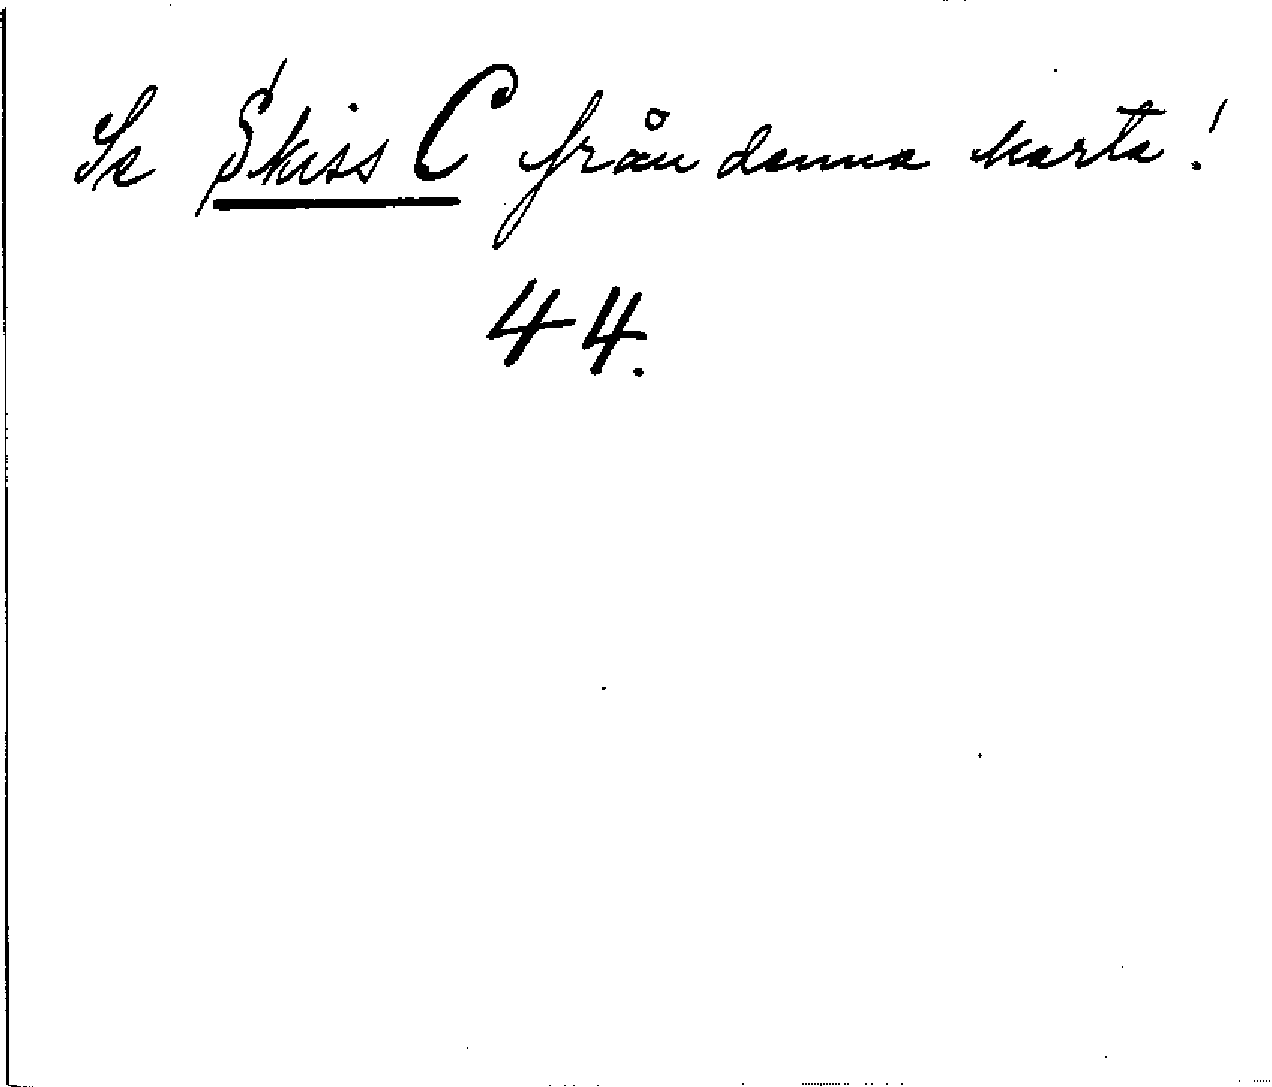 Se Skiss C från denna karta!
44.